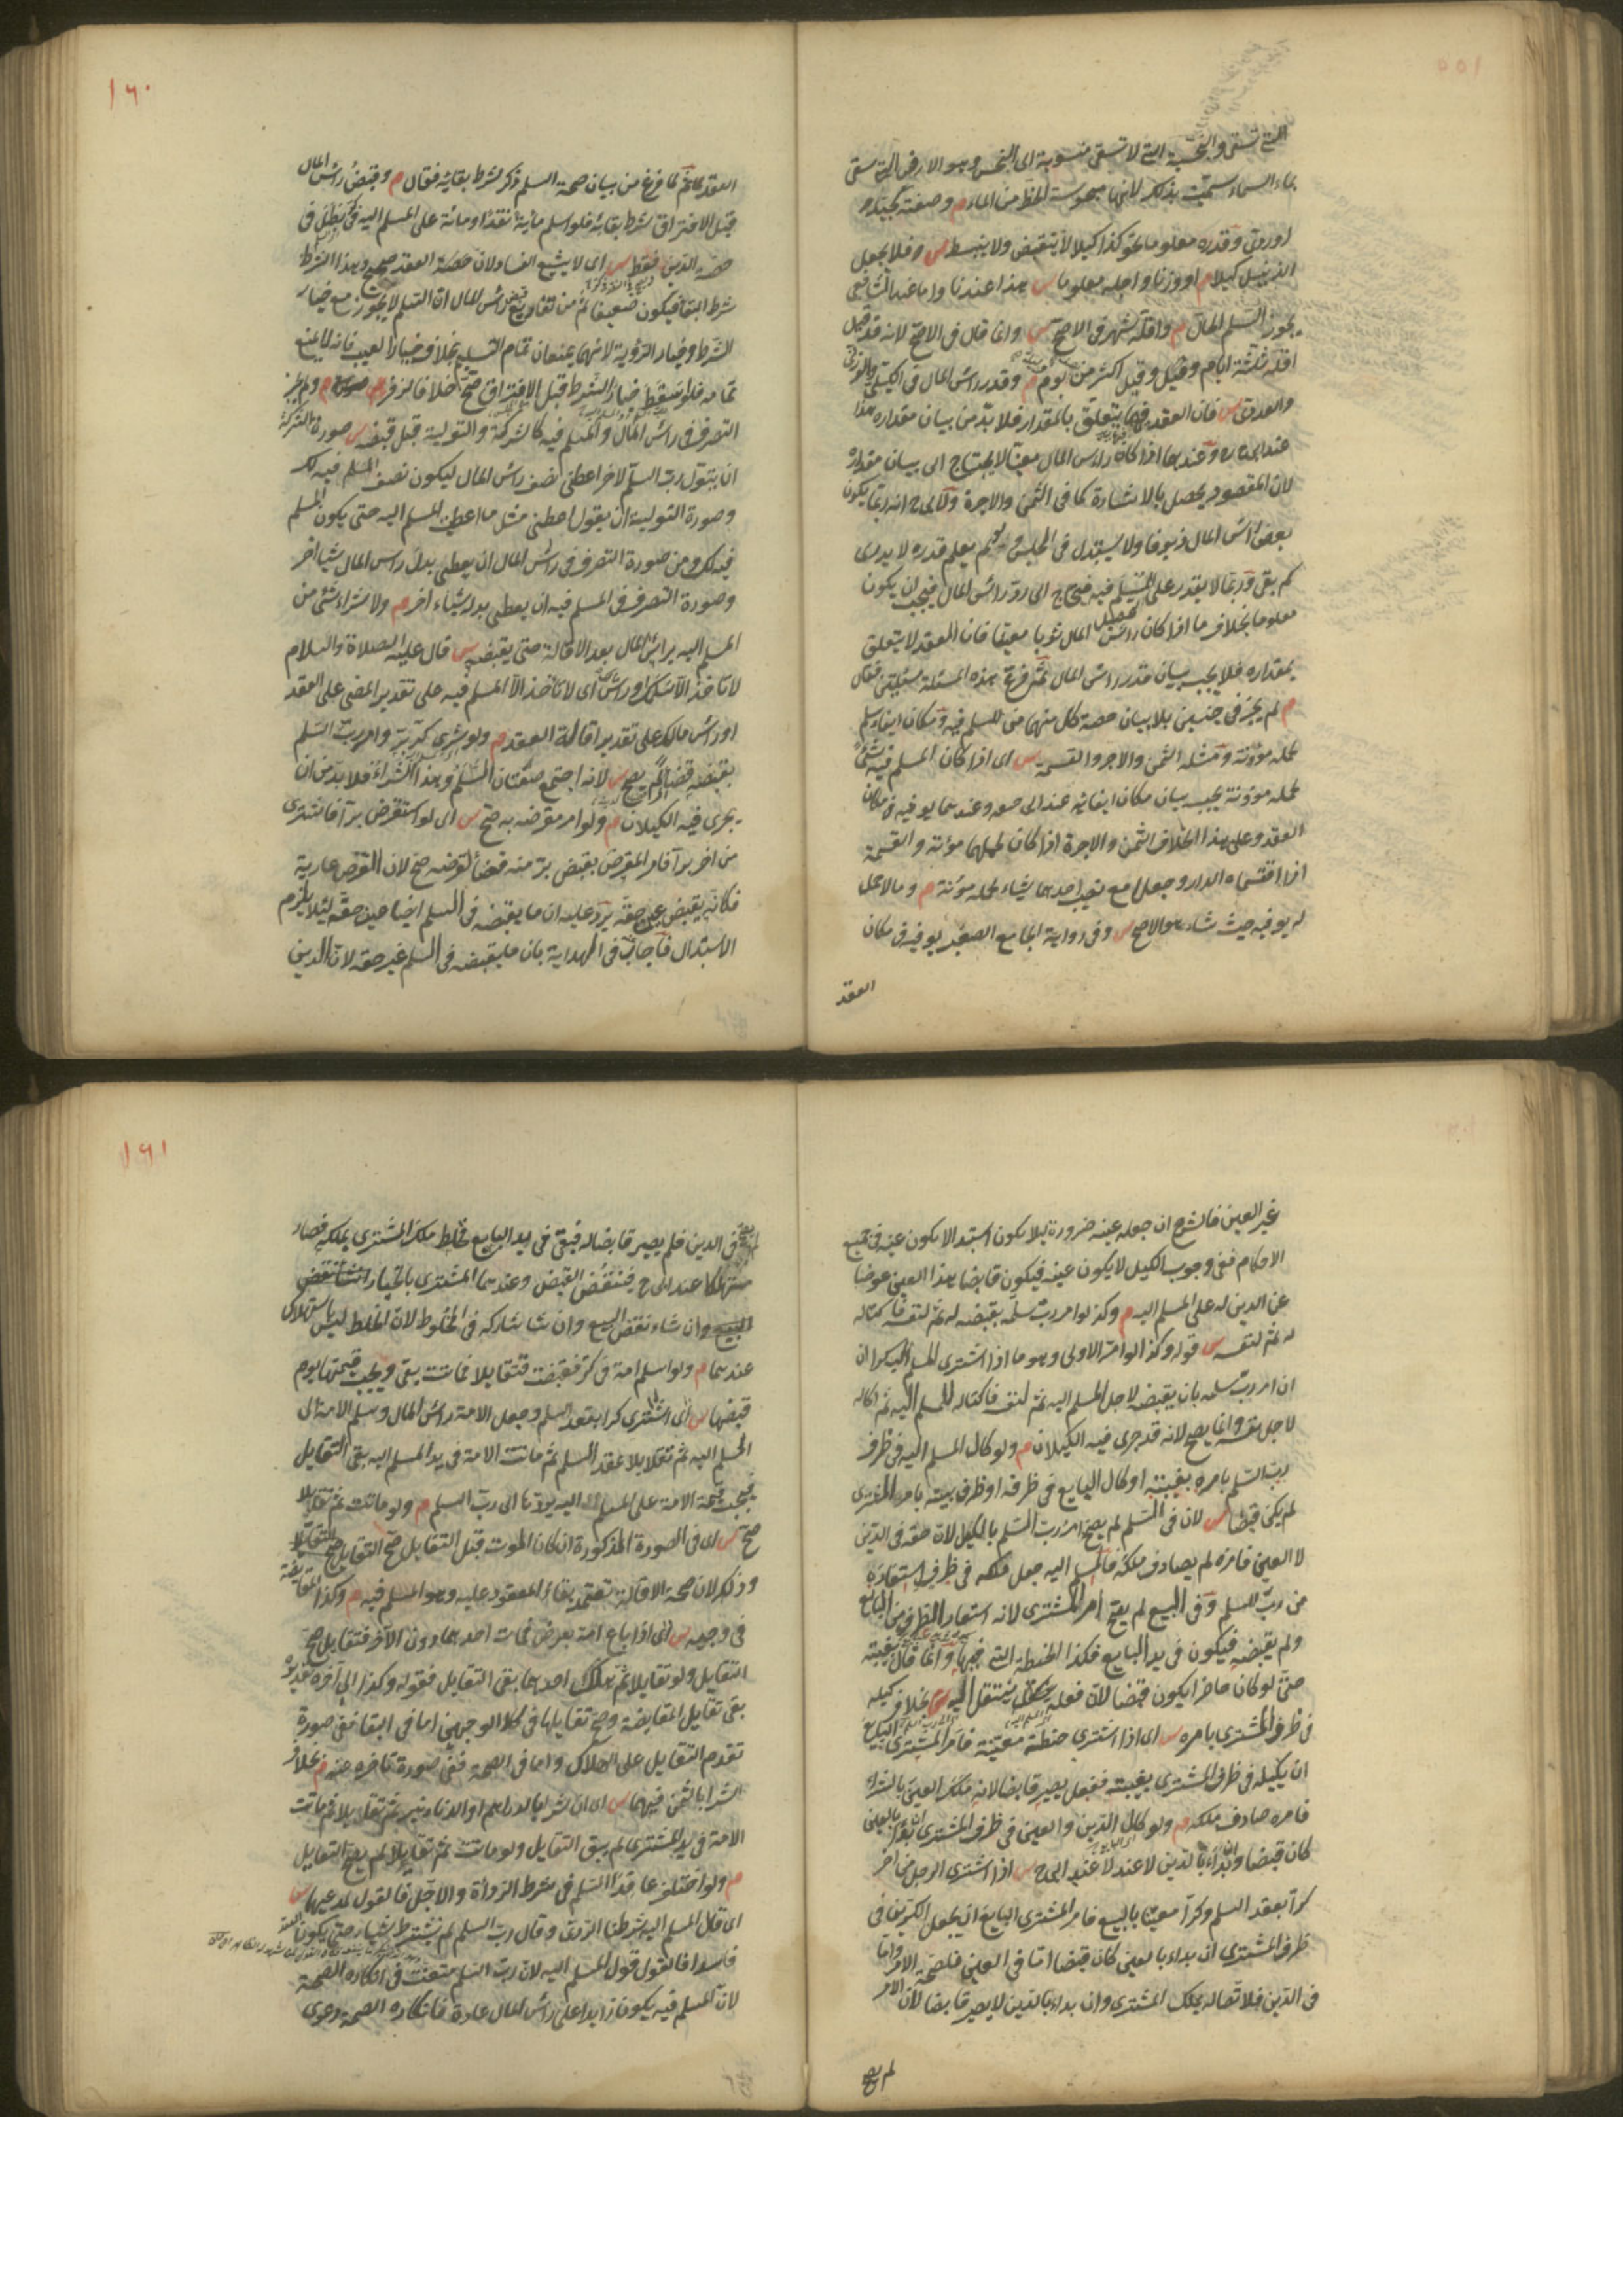 التى تسقى والبخسية التى لا تسقى منسوبة الى البخس وهو الارض التى تسقى
بماء السماء سميت بذلك لانها مبخوسة الحظ من الماء م وصفته كجيد
او ردى وقدره معلوما نحو كذا كيلا لا ينقبض ولا ينبسط س فلا يجعل
الزنبيل كيلا م او وزنا واجله معلوما س هذا عندنا واما عند الشافعى
يجوز السلم الحال م واقله شهر فى الاصح س وانما قال فى الاصح لانه قد قيل
اقله ثلثة ايام وقيل وقيل اكثر من يوم م وقدر راس المال فى الكيلى والوزنى
والعددى س فان العقد فيها يتعلق بالمقدار فلا بد من بيان مقداره هذا
عند ابى ح وعندهما اذا كان راس المال معينا لا يحتاج الى بيان مقداره
لان المقصود يحصل بالاشارة كما فى الثمن والاجرة ولابى ح انه ربما يكون
بعض راس المال زيوفا ولا يستبدل فى المجلس ولو لم يعلم قدره لا يدرى
كم بقى وربما لا يقدر على المسلم فيه فيحتاج الى رد راس المال فيجب ان يكون
معلوما بخلاف ما اذا كان راس المال ثوبا معينا فان العقد لا يتعلق
بمقداره فلا يجب بيان قدر راس المال ثم فرع بهذه المسئلة مسئلتين فقال
م لم يجز فى جنسين بلا بيان حصة كل منهما من المسلم فيه ومكان ايفاء مسلم
لحمله مؤونة ومثله الثمن والاجر والقسمة س اى اذا كان المسلم فيه شيئا
لحمله مؤونة يجب بيان مكان ايفائه عند ابى ح وعندهما يوفيه فى مكان
العقد وعلى هذا الخلاف الثمن والاجرة اذا كان لحملهما مؤنة والقسمة
اذا اقتسما الدار وجعلا مع نصيب احدهما شياء لحمله مؤنة م وما لا حمل
له يوفيه حيث شاء هو الاصح س وفى رواية الجامع الصغير يوفيه فى مكان
العقد
١٦٠
العقد ثم لما فرغ من بيان صحة السلم ذكر شرط بقائه فقال م وقبض راس المال
قبل الافتراق شرط بقائه فلو اسلم مائة نقدا ومائة على المسلم اليه فى كر بطل فى
حصة الدين فقط س اى لا يشيع الفساد لان حصة العقد صحيح وهذا الشرط
شرط البقا فيكون ضعيفا ثم من تفاريع قبض راس المال ان السلم لا يجوز مع خيار
الشرط وخيار الرؤية لانهما يمنعان تمام التسليم بخلاف خيار العيب فانه لا يمنع
تمامه فلو اسقط خيار الشرط قبل الافتراق صح خلافا لزفر م ولم يجز
التصرف فى راس المال والمسلم فيه كالشركة والتولية قبل قبضه س صورة الشركة
ان يقول رب السلم لاخر اعطنى نصف راس المال ليكون نصف المسلم فيه لك
وصورة التولية ان يقول اعطنى مثل ما اعطيت المسلم اليه حتى يكون المسلم
فيه لك ومن صورة التصرف فى راس المال ان يعطى بدل راس المال شيا اخر
وصورة التصرف فى المسلم فيه ان يعطى بدله شياء اخر م ولا شراء شئ من
المسلم اليه براس المال بعد الاقالة حتى يقبضه س قال عليه الصلاة والسلام
لا تأخذ الا سلمك او راس مالك اى لا تأخذ الا المسلم فيه على تقدير المضى على العقد
او راس مالك على تقدير اقالة العقد م ولو شرى كر بر وامر رب السلم
بقبضه قضاء لم يصح س لانه اجتمع صفقتان السلم وهذا الشراء فلا بد من ان
يجرى فيه الكيلان م ولو امر مقرضه به صح س اى لو استقرض برا فاشترى
من اخر برا فامر المقرض بقبض بر منه قضاء لقرضه صح لان القرض عارية
فكانه يقبض عين حقه يرد عليه ان ما يقبضه فى السلم ايضا عين حقه لئلا يلزم
الاستبدال فاجاب فى الهداية بان ما يقبضه فى السلم غير حقه لان الدين
غير العين فالشرع ان جعله عينه ضرورة لئلا يكون استبدالا يكون عينه فى جميع
الاحكام ففى وجوب الكيل لا يكون عينه فيكون قابضا هذا العين عوضا
عن الدين له على المسلم اليه م وكذا لو امر رب سلمه بقبضه له ثم لنفسه فاكتاله
له ثم لنفسه س قوله وكذا لو امر الاولى وهو ما اذا اشترى المسلم اليه كرا ان
ان امر رب سلمه بان يقبضه لاجل المسلم اليه ثم لنفسه فاكتاله للمسلم اليه ثم اكاله
لاجل نفسه وانما يصح لانه قد جرى فيه الكيلان م ولو كال المسلم اليه فى ظرف
رب السلم بامره بغيبته او كال البايع فى ظرفه او ظرف بيته بامر المشترى
لم يكن قبضا س لان فى السلم لم يصح امر رب السلم بالكيل لان حقه فى الدين
لا العين فامره لم يصادف ملكه فالمسلم اليه جعل ملكه فى ظرف استعاره
من رب السلم وفى البيع لم يصح امر المشترى لانه استعار الظرف من البايع
ولم يقبضه فيكون فى يد البايع فكذا الحنطة التى فيها وانما قال بغيبته
حتى لو كان حاضرا يكون قبضا لان فعله ينتقل اليه بخلاف كيله
فى ظرف المشترى بامره س اى اذا اشترى حنطة معينة فامر المشترى البايع
ان يكيله فى ظرف المشترى بغيبته ففعل يصير قابضا لانه ملك العين بالشراء
فامره صادف ملكه م ولو كال الدين والعين فى ظرف المشترى ان بدأ بالعين
كان قبضا وان بدأ بالدين لا عند ابى ح س اذا اشترى الرجل من اخر
كرا بعقد السلم وكرا معينا بالبيع فامر المشترى البايع ان يجعل الكرين فى
ظرف المشترى ان بداء بالعين كان قبضا اما فى العين فلصحة الامر واما
فى الدين فلاتصاله بملك المشترى وان بداء بالدين لا يصير قابضا لان الامر
لم يصح
١٦١
لم يصح فى الدين فلم يصير قابضا له فبقى فى يد البايع فخلط ملك المشترى بملكه فصار
مستهلكا عند ابى ح فينتقض القبض وعندهما المشترى بالخيار
وان شاء نقض البيع وان شا شاركه فى المخلوط لان الخلط ليس باستهلاك
عندهما م ولو اسلم امة فى كر فقبضت فتقايلا فماتت بقى ويجب قيمتها يوم
قبضها س اى اشترى كرا بعقد السلم وجعل الامة راس المال وسلم الامة الى
المسلم اليه ثم تقايلا عقد السلم ثم ماتت الامة فى يد المسلم اليه بقى التقايل
فيجب قيمة الامة على المسلم اليه يردها الى رب السلم م ولو ماتت ثم تقايلا
صح س اى فى الصورة المذكورة ان كان الموت قبل التقايل صح التقايل
وذلك لان صحة الاقالة تعتمد بقاء المعقود عليه وهو المسلم فيه م وكذا المقايضة
فى وجهيه س اى اذا باع امة بعرض فمات احدهما دون الاخر فتقايلا صح
التقايل ولو تقايلا ثم هلك احدهما بقى التقايل فقوله وكذا الى آخره تقديره
بقى تقايل المقايضة وصح تقايلها فى كلا الوجهين اما فى البقا ففى صورة
تقدم التقايل على الهلاك واما فى الصحة ففى صورة تاخره عنه م بخلاف
الشرا بالثمن فيهما س اى ان شرى بالدراهم او الدنانير ثم تقايلا ثم ماتت
الامة فى يد المشترى لم يبق التقايل ولو ماتت ثم تقايلا لم يصح التقايل
م ولو اختلف عاقدا السلم فى شرط الرداءة والاجل فالقول لمدعيهما س
اى قال المسلم اليه شرطنا الردى وقال رب السلم لم نشترط شيا حتى يكون العقد
فاسدا فالقول قول المسلم اليه لان رب السلم متعنت فى انكاره الصحة
لان المسلم فيه يكون زايدا على راس المال عادة فانكاره الصحة دعوى